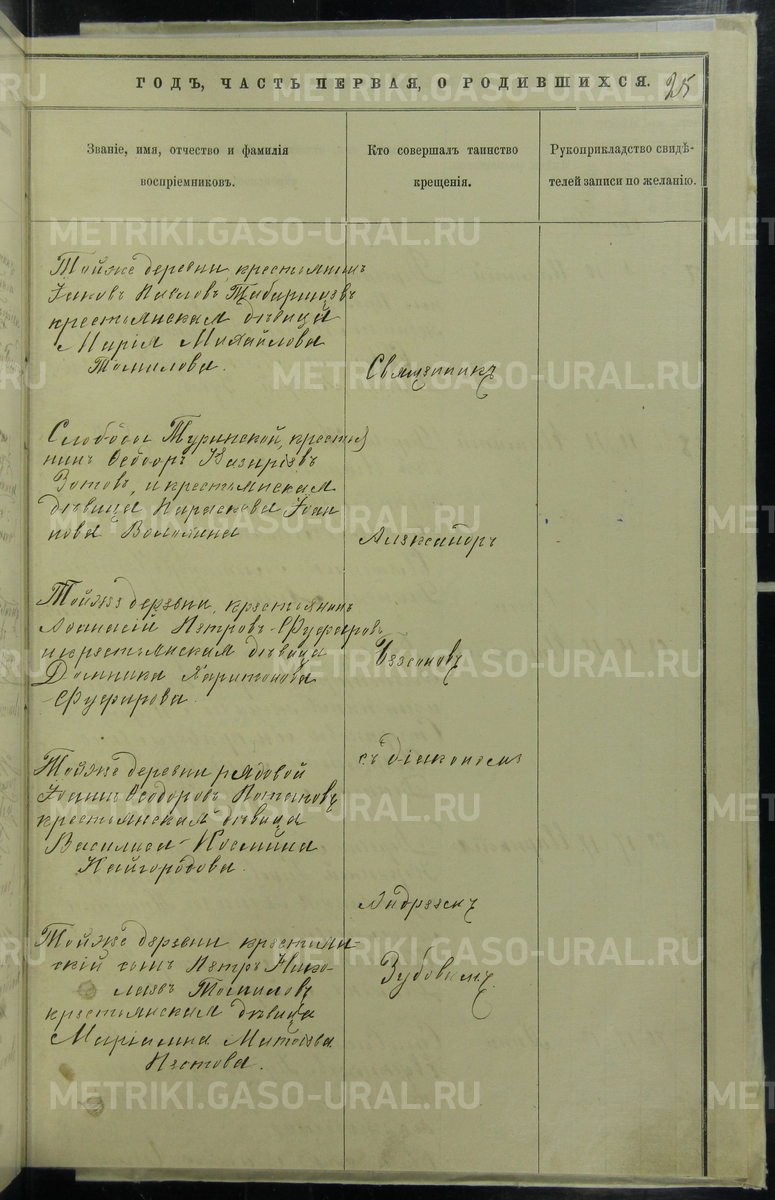 ГОДЪ, ЧАСТЬ ПЕРВАЯ, О РОДИВШИХСЯ.
25
Званіе, имя, отчество и фамилія
воспріемниковъ.
Кто совершалъ таинство
крещенія.
Рукоприкладство свидѣ-
телей записи по желанію.
Тойже деревни, крестьянинъ
Іаковъ Павловъ Табаринцевъ
крестьянская дѣвица
Марія Михайлова
Томилова.
Слободы Туринской, крестья
нинъ Ѳеодоръ
Зотовъ, и крестьянская
дѣвица Параскева Іоан
нова Волохина
Тойже деревни, крестьянинъ
Аѳанасій Петровъ Фуфаровъ
и крестьянская дѣвица
Домника Харитонова
Фуфарова.
Тойже деревни рядовой
Іоаннъ Ѳеодоровъ Потаповъ
крестьянская дѣвица
Василиса Космина
Кайгородова.
Тойже деревни крестьян-
скій сынъ Петръ Нико-
лаевъ Томиловъ
крестьянская дѣвица
Маріамна
Пестова.
Священникъ
Александръ
Бессоновъ
съ діакономъ
Андреемъ
Зубовымъ.
METRIKI.GASO-URAL.RU